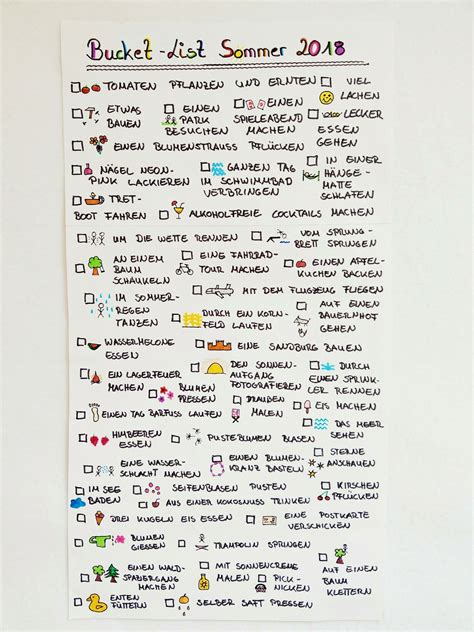 Bucket-List Sommer 2018
TOMATEN PFLANZEN UND ERNTEN
VIEL LACHEN
ETWAS BAUEN
EINEN PARK BESUCHEN
EINEN SPIELEABEND MACHEN
LECKER ESSEN GEHEN
EINEN BLUMENSTRAUSS PFLÜCKEN
NÄGEL NEON-
PINK LACKIEREN
GANZEN TAG
IM SCHWIMMBAD
VERBRINGEN
IN EINER
HÄNGE-
MATTE
SCHLAFEN
TRET-
BOOT FAHREN
ALKOHOLFREIE COCKTAILS MACHEN
UM DIE WETTE RENNEN
VOM SPRUNG-
BRETT SPRINGEN
AN EINEM
BAUM
SCHAUKELN
EINE FAHRRAD-
TOUR MACHEN
EINEN APFEL-
KUCHEN BACKEN
IM SOMMER-
REGEN
TANZEN
MIT DEM FLUGZEUG FLIEGEN
DURCH EIN KORN-
FELD LAUFEN
AUF EINEN
BAUERNHOF
GEHEN
WASSERMELONE
ESSEN
EINE SANDBURG BAUEN
EIN LAGERFEUER
MACHEN
DEN SONNEN-
AUFGANG
FOTOGRAFIEREN
DURCH
EINEN SPRINK-
LER RENNEN
BLUMEN
PRESSEN
EINEN TAG BARFUSS LAUFEN
DRAUßEN
MALEN
EIS MACHEN
HIMBEEREN
ESSEN
PUSTEBLUMEN BLASEN
DAS MEER
SEHEN
EINE WASSER-
SCHLACHT MACHEN
EINEN BLUMEN-
KRANZ BASTELN
STERNE
ANSCHAUEN
IM SEE
BADEN
SEIFENBLASEN PUSTEN
KIRSCHEN
PFLÜCKEN
AUS EINER KOKOSNUSS TRINKEN
DREI KUGELN EIS ESSEN
EINE POSTKARTE
VERSCHICKEN
BLUMEN
GIESSEN
TRAMPOLIN SPRINGEN
EINEN WALD-
SPAZIERGANG
MACHEN
MIT SONNENCREME
MALEN
PICK-
NICKEN
AUF
EINEN
BAUM
KLETTERN
ENTEN
FÜTTERN
SELBER SAFT PRESSEN